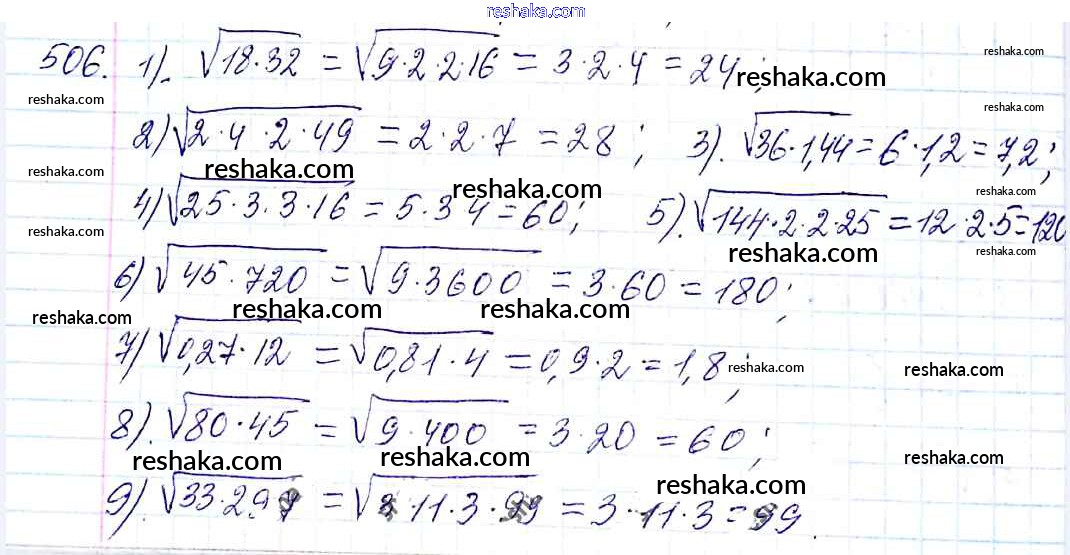 reshaka.com
506. 1). √18·32 = √9·2·2·16 = 3·2·4 = 24; reshaka.com reshaka.com
reshaka.com reshaka.com
2) √2·4·2·49 = 2·2·7 = 28; 3). √36·1,44 = 6·1,2 = 7,2;
reshaka.com reshaka.com reshaka.com reshaka.com
4) √25·3·3·16 = 5·3·4 = 60; 5). √144·2·2·25 = 12·2·5=120
reshaka.com reshaka.com reshaka.com
6) √45·720 = √9·3600 = 3·60 = 180;
reshaka.com reshaka.com reshaka.com
7) √0,27·12 = √0,81·4 = 0,9·2 = 1,8; reshaka.com reshaka.com
8). √80·45 = √9·400 = 3·20 = 60;
reshaka.com reshaka.com reshaka.com
reshaka.com
9). √33·297 = √ ·11·3·99 = 3·11·3 = 99